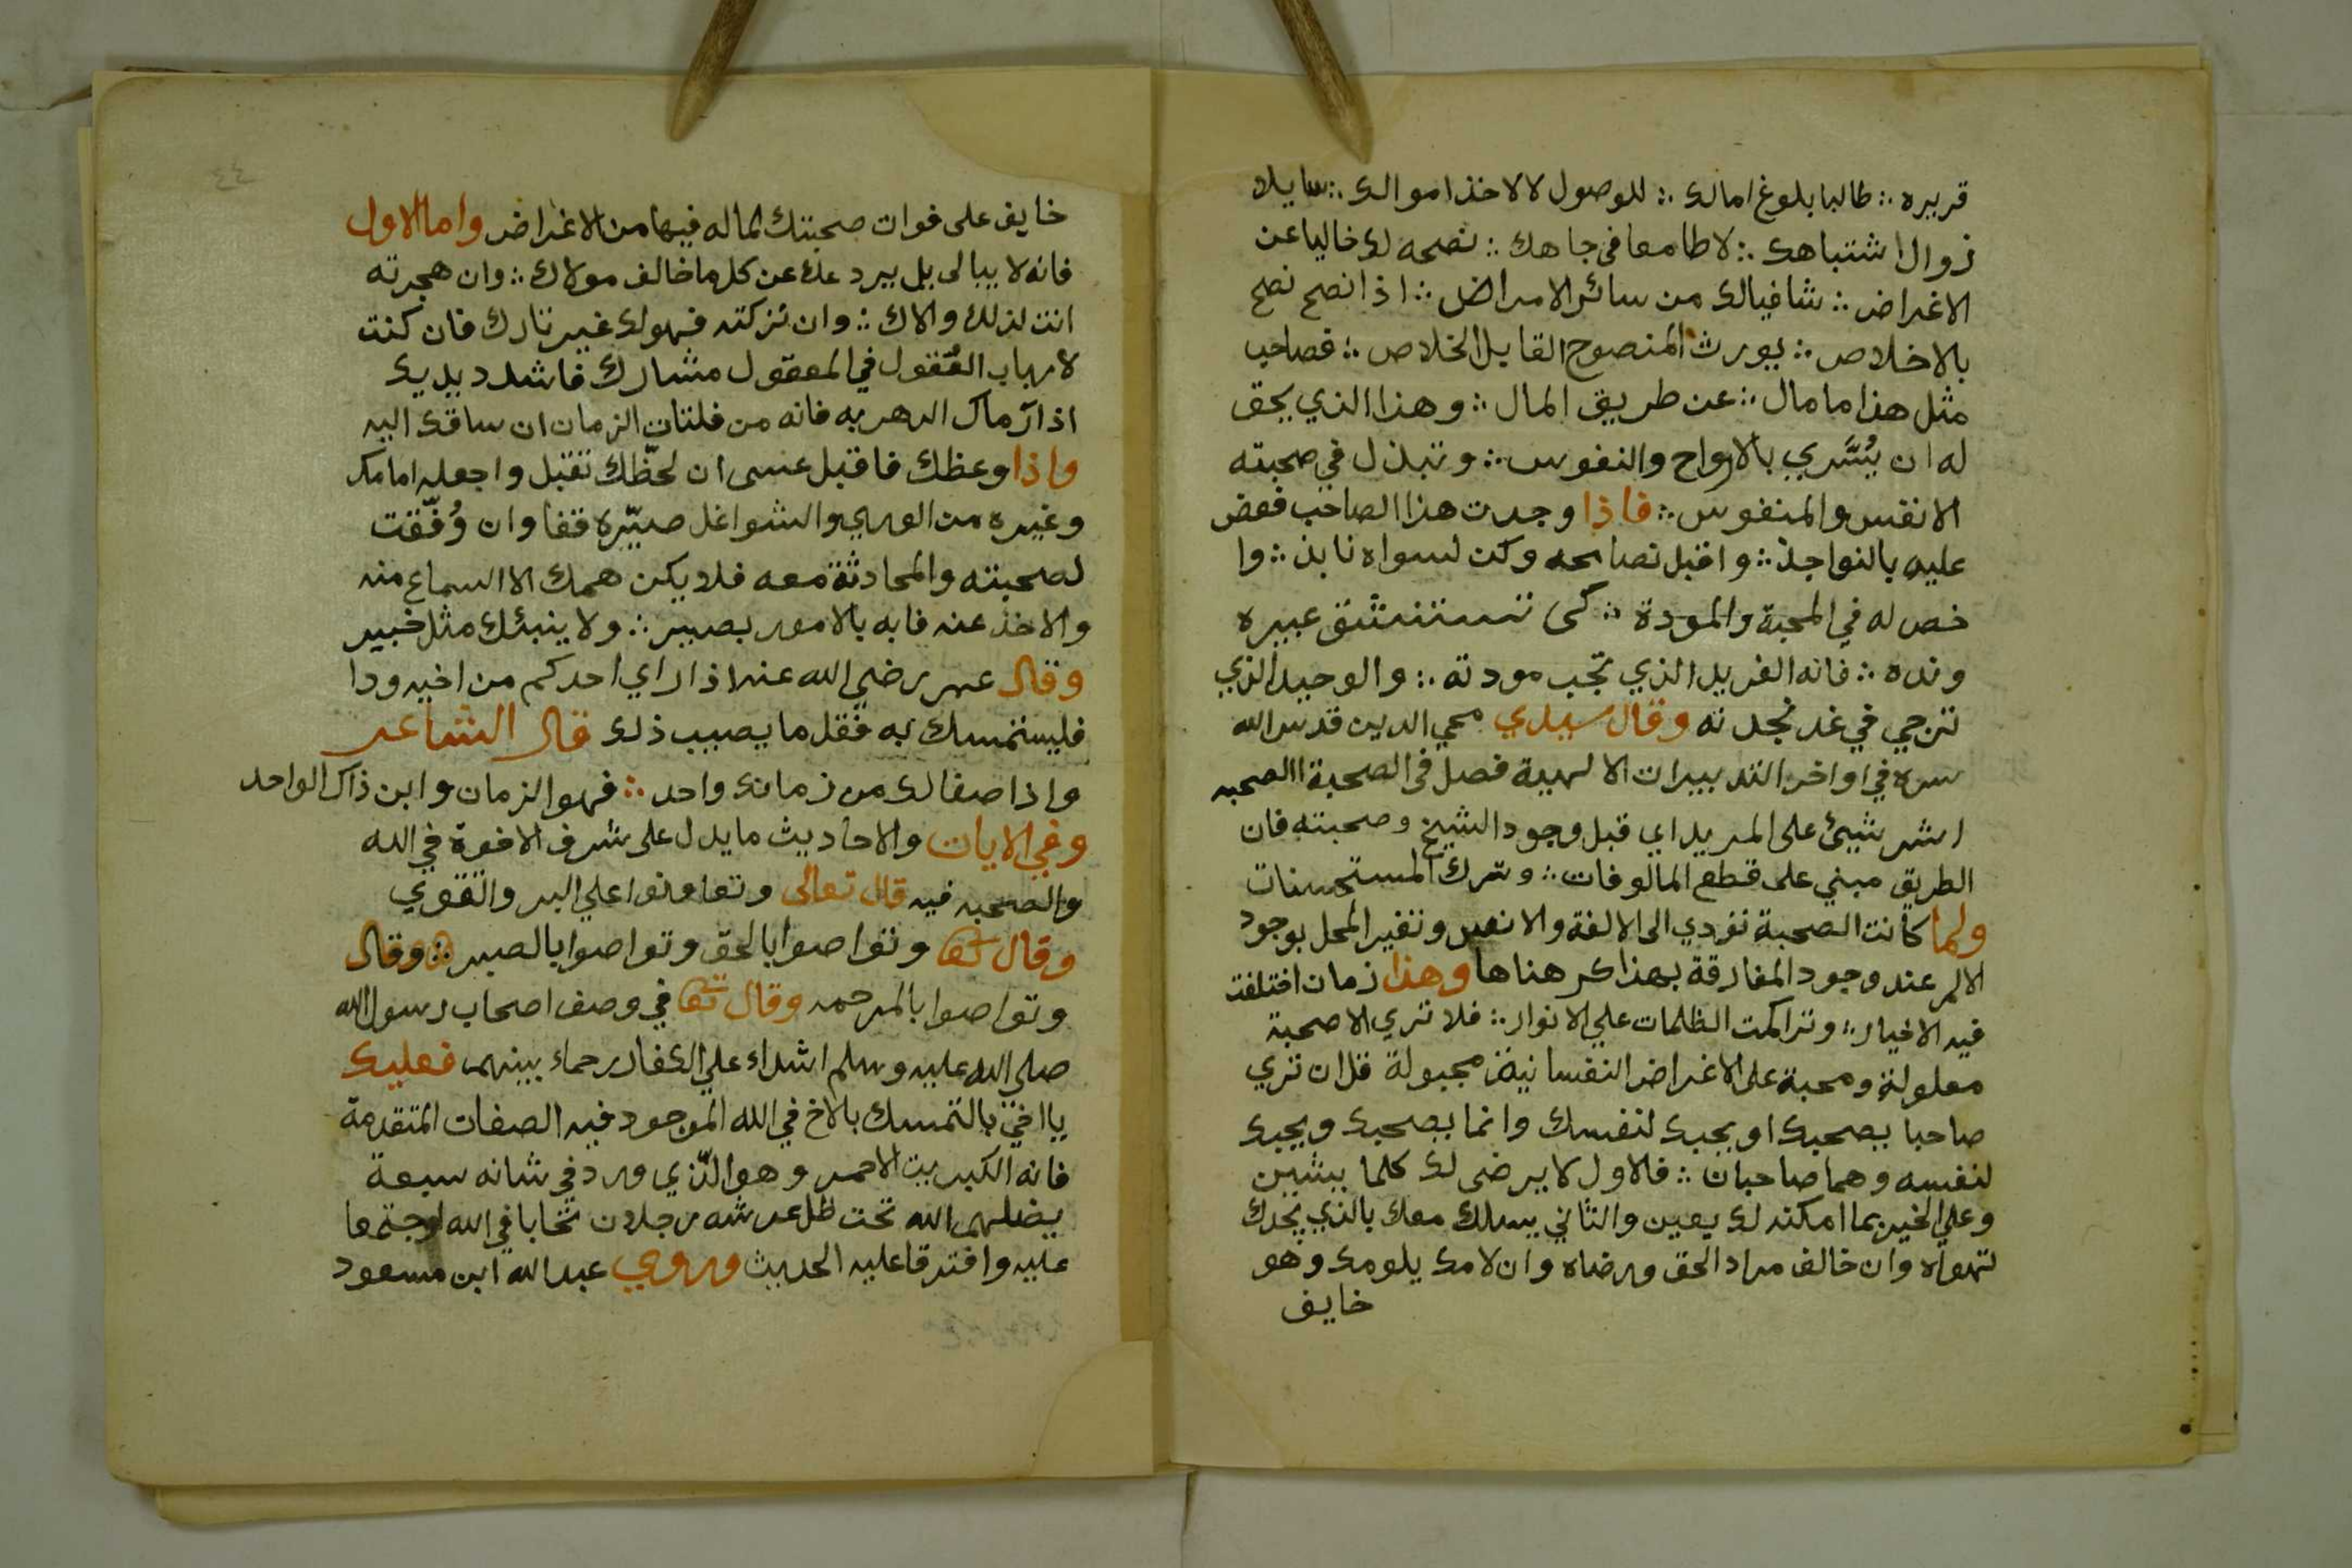 قريره ∴ طالبا بلوغ امالك ∴ للوصول لا لاخذ اموالك ∴ سايلا
زوال اشتباهك ∴ لا طامعا في جاهك ∴ نصحه لك خاليا عن
الاغراض ∴ شافيا لك من سائر الامراض ∴ اذا نصح نصح
بالاخلاص ∴ يورث المنصوح القايل الخلاص ∴ فصاحب
مثل هذا ما مال ∴ عن طريق المال ∴ وهذا الذي يحق
له ان يُشَري بالارواح والنفوس ∴ وتبذل في صحبته
الانفس والمنفوس ∴ فاذا وجدت هذا الصاحب فعض
عليه بالنواجذ ∴ واقبل نصايحه وكن لسواه نابذ ∴ وا
خص له في المحبة والمودة ∴ كى تستنشق عبيره
ونده ∴ فانه الفريد الذي تجب مودته ∴ والوحيد الذي
ترجي في غد نجدته وقال سيدي محي الدين قدس الله
سره في اواخر التدبيرات الالهية فصل في الصحبة الصحبه
اشر شيئ على المريد اي قبل وجود الشيخ وصحبته فان
الطريق مبني على قطع المالوفات ∴ وترك المستحسنات
ولما كانت الصحبة تؤدي الى الالفة والانس وتغير المحل بوجود
الالم عند وجود المفارقة بهذا كرهناها وهذا زمان اختلفت
فيه الاخيار ∴ وتراكمت الظلمات علي الانوار ∴ فلا تري الا صحبة
معلولة ومحبة على الاغراض النفسانية مجبولة قل ان تري
صاحبا يصحبك او يحبك لنفسك وانما يصحبك ويحبك
لنفسه وهما صاحبان ∴ فالاول لا يرضى لك كلما يشين
وعلي الخير بما امكنه لك يعين والثاني يسلك معك بالذي يجدك
تهواه وان خالف مراد الحق ورضاه وان لامك يلومك وهو
خايف
٤٤
خايف على فوات صحبتك لما له فيها من الاغراض واما الاول
فانه لا يبالى بل يردعك عن كل ما خالف مولاك ∴ وان هجرته
انت لذلك والاك ∴ وان تركته فهو لك غير تارك فان كنت
لارباب العُقول في المعقول مشارك فاشدد يديك
اذا رماك الدهر به فانه من فلتات الزمان ان ساقك اليه
واذا وعظك فاقبل عسى ان لحظّك تقبل واجعله امامك
وغيره من الوري والشواغل صيّره قفا وان وُفّقت
لصحبته والمحادثة معه فلا يكن همك الا السماع منه
والاخذ عنه فابه بالامور بصير ∴ ولا ينبئك مثل خبير
وقال عمر رضي الله عنه اذا راي احدكم من اخيه ودا
فليستمسك به فقل ما يصيب ذلك قال الشاعر
واذا صفا لك من زمانك واحد ∴ فهو الزمان وابن ذاك الواحد
وفي الايات والاحاديث ما يدل على شرف الاخوة في الله
والصحبه فيه قال تعالى وتعاونوا علي البر والتقوي
وقال تعا وتواصوا بالحق وتواصوا بالصبر ∴ وقال
وتواصوا بالمرحمه وقال تعا في وصف اصحاب رسول الله
صلى الله عليه وسلم اشداء علي الكفار رحماء بينهم فعليك
يا اخي بالتمسك بالاخ في الله الموجود فيه الصفات المتقدمة
فانه الكبريت الاحمر وهو الّذي ورد في شانه سبعة
يضلهم الله تحت ظل عرشه رجلان تحابا في الله اوجتمعا
عليه وافترقا عليه الحديث وروي عبد الله ابن مسعود